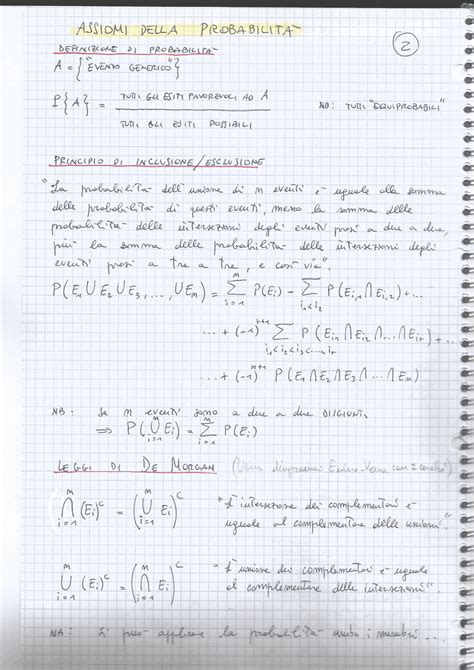 ASSIOMI DELLA PROBABILITÀ
2
DEFINIZIONE DI PROBABILITÀ
A = { "EVENTO GENERICO" }
P{A} = TUTTI GLI ESITI FAVOREVOLI AD A / TUTTI GLI ESITI POSSIBILI
NB: TUTTI "EQUIPROBABILI"
PRINCIPIO DI INCLUSIONE/ESCLUSIONE
"La probabilità dell'unione di n eventi è uguale alla somma
delle probabilità di questi eventi, meno la somma delle
probabilità delle intersezioni degli eventi presi a due a due,
più la somma delle probabilità delle intersezioni degli
eventi presi a tre a tre, e così via".
P(E₁ ∪ E₂ ∪ E₃, ..., ∪ Eₙ) = Σᵢ₌₁ⁿ P(Eᵢ) − Σ_{i₁<i₂} P(E_{i₁} ∩ E_{i₂}) + ...
... + (−1)^{r+1} Σ_{i₁<i₂<i₃<...<iᵣ} P(E_{i₁} ∩ E_{i₂} ∩ ... ∩ E_{iᵣ}) + ...
... + (−1)^{n+1} P(E₁ ∩ E₂ ∩ E₃ ∩ ... ∩ Eₙ)
NB: Se n eventi sono a due a due DISGIUNTI
⇒ P(⋃ᵢ₌₁ⁿ Eᵢ) = Σᵢ₌₁ⁿ P(Eᵢ)
LEGGI DI DE MORGAN (Usare diagrammi Eulero-Venn con 2 cerchi)
⋂ᵢ₌₁ⁿ (Eᵢ)ᶜ = (⋃ᵢ₌₁ⁿ Eᵢ)ᶜ "L'intersezione dei complementari è
uguale al complementare delle unioni"
⋃ᵢ₌₁ⁿ (Eᵢ)ᶜ = (⋂ᵢ₌₁ⁿ Eᵢ)ᶜ "L'unione dei complementari è uguale
al complementare delle intersezioni".
NB: Si può applicare la probabilità ambo i membri...